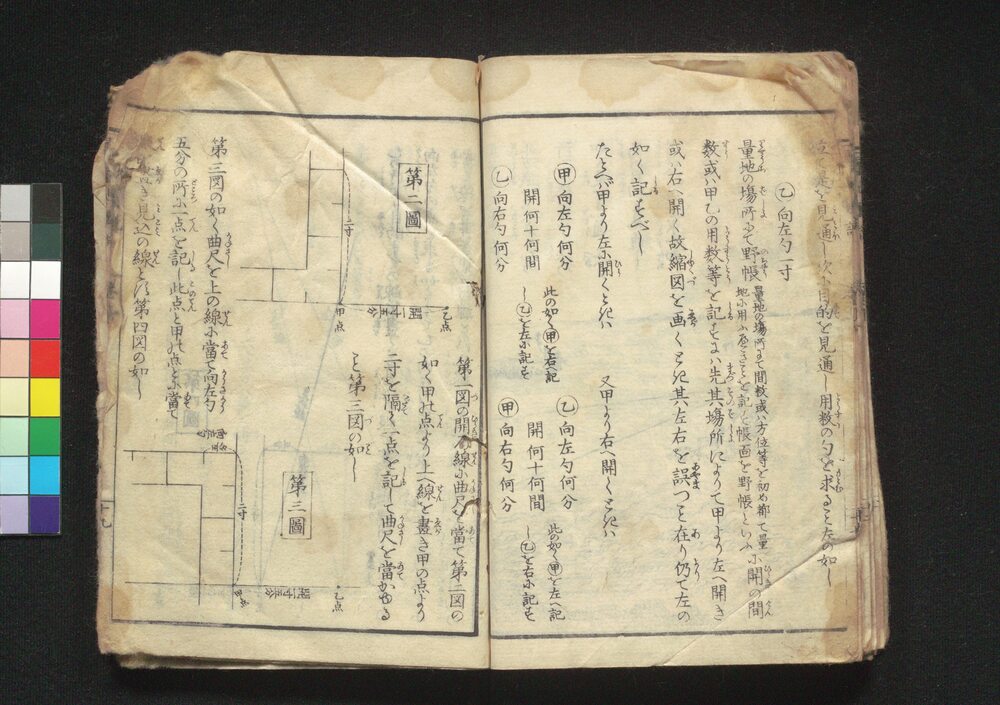 是を見通し次に目的を見通し用数の勾を求ること左の如し
㋚向左勾一寸
量地の場所にて野帳
量地の場所にて間数或ハ方位等を初め都て量
地に用ふべきことを記し帳面を野帳といふ
に開の間
数或ハ甲乙の用数等を記すにハ先其場所によりて甲より左へ開き
或ハ右へ開く故縮図を画くとき其左右を誤つこと在り仍て左の
如く記すべし
たとへバ甲より左に開くときハ
甲向左勾何分
開何十何間
乙向右勾何分
此の如く甲を右へ記
し乙を左に記す
又甲より右へ開くときハ
乙向左勾何分
開何十何間
甲向右勾何分
此の如く甲を左へ記
し乙を右に記す
第二圖
二寸
甲点
乙点
第一図の開の線に曲尺を當て第二図の
如く甲の点より上へ線を畫き甲の点より
二寸を隔て一点を記して曲尺を當かゆる
こと第三図の如し
第三圖
二寸
甲点
乙点
第三図の如く曲尺を上の線に當て向左勾
五分の所に一点を記し此点と甲の点とに當て
き見込の線とす第四図の如し
十九